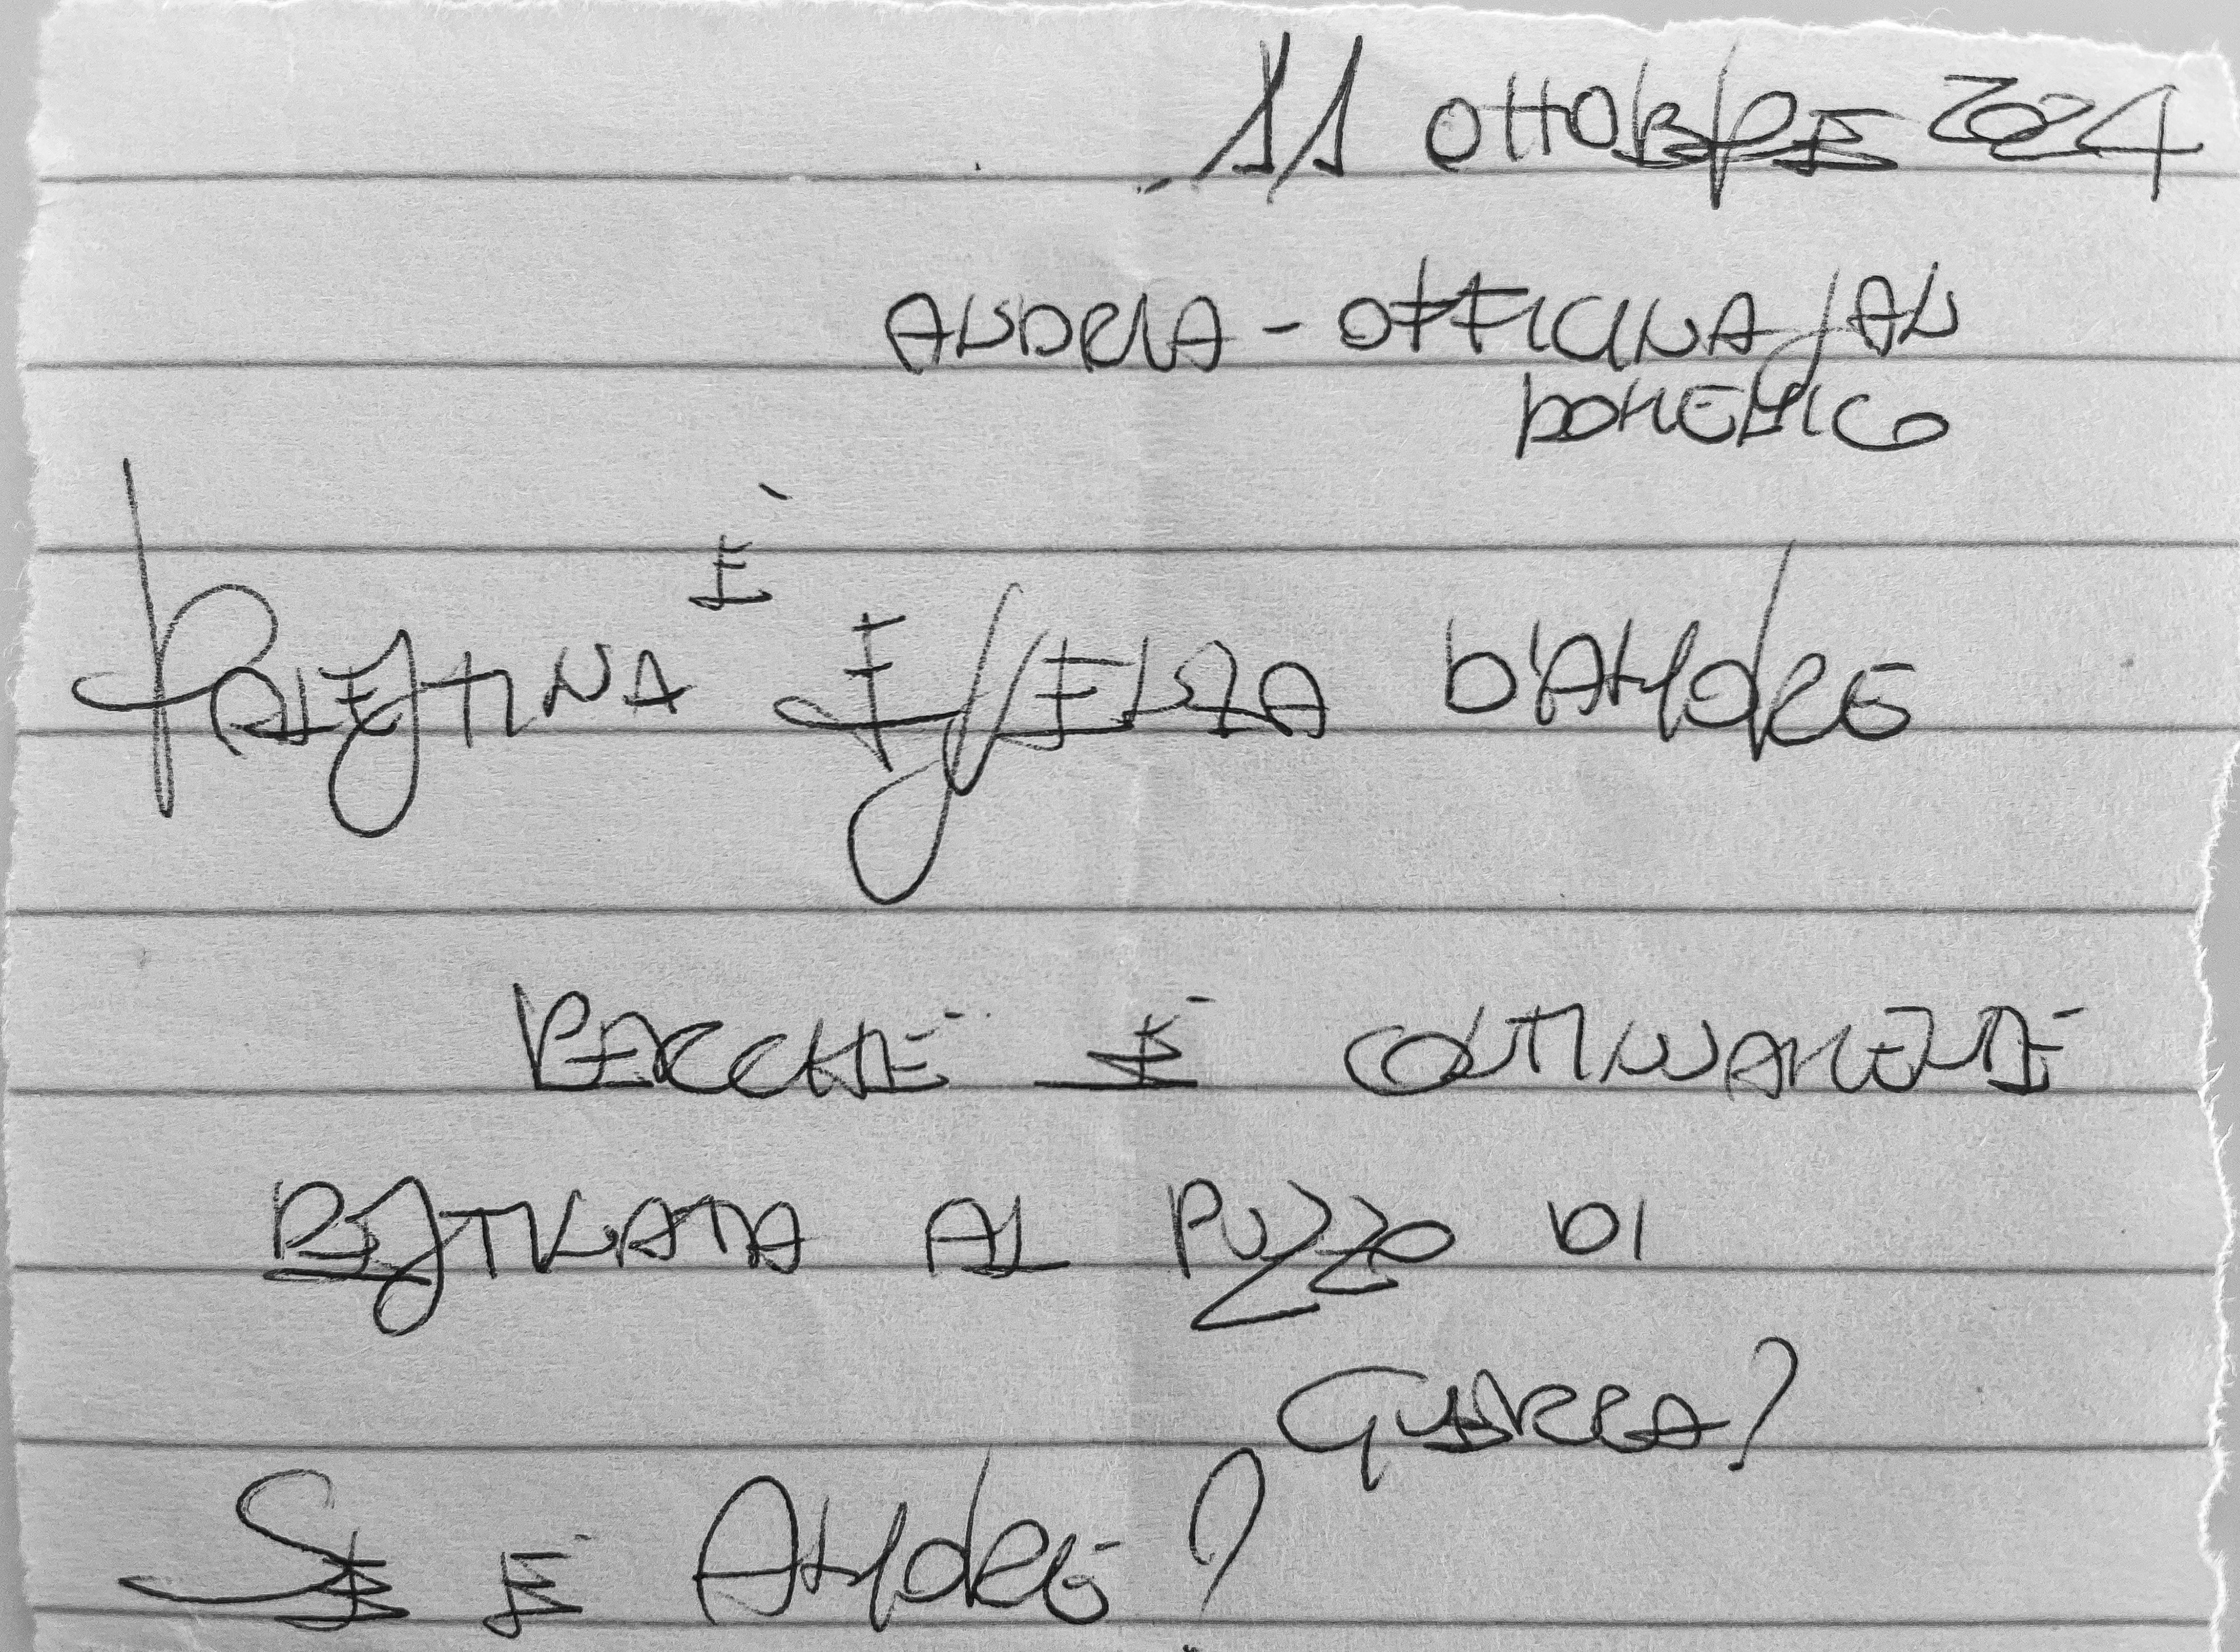 11 OTTOBRE 2024
ANDRIA - OFFICINA SAN
DOMENICO
È
PALESTINA ESSENZA D'AMORE
PERCHÉ È CONTINUAMENTE
BISTRATTATA AL PUZZO DI
GUERRA?
SE È AMORE?